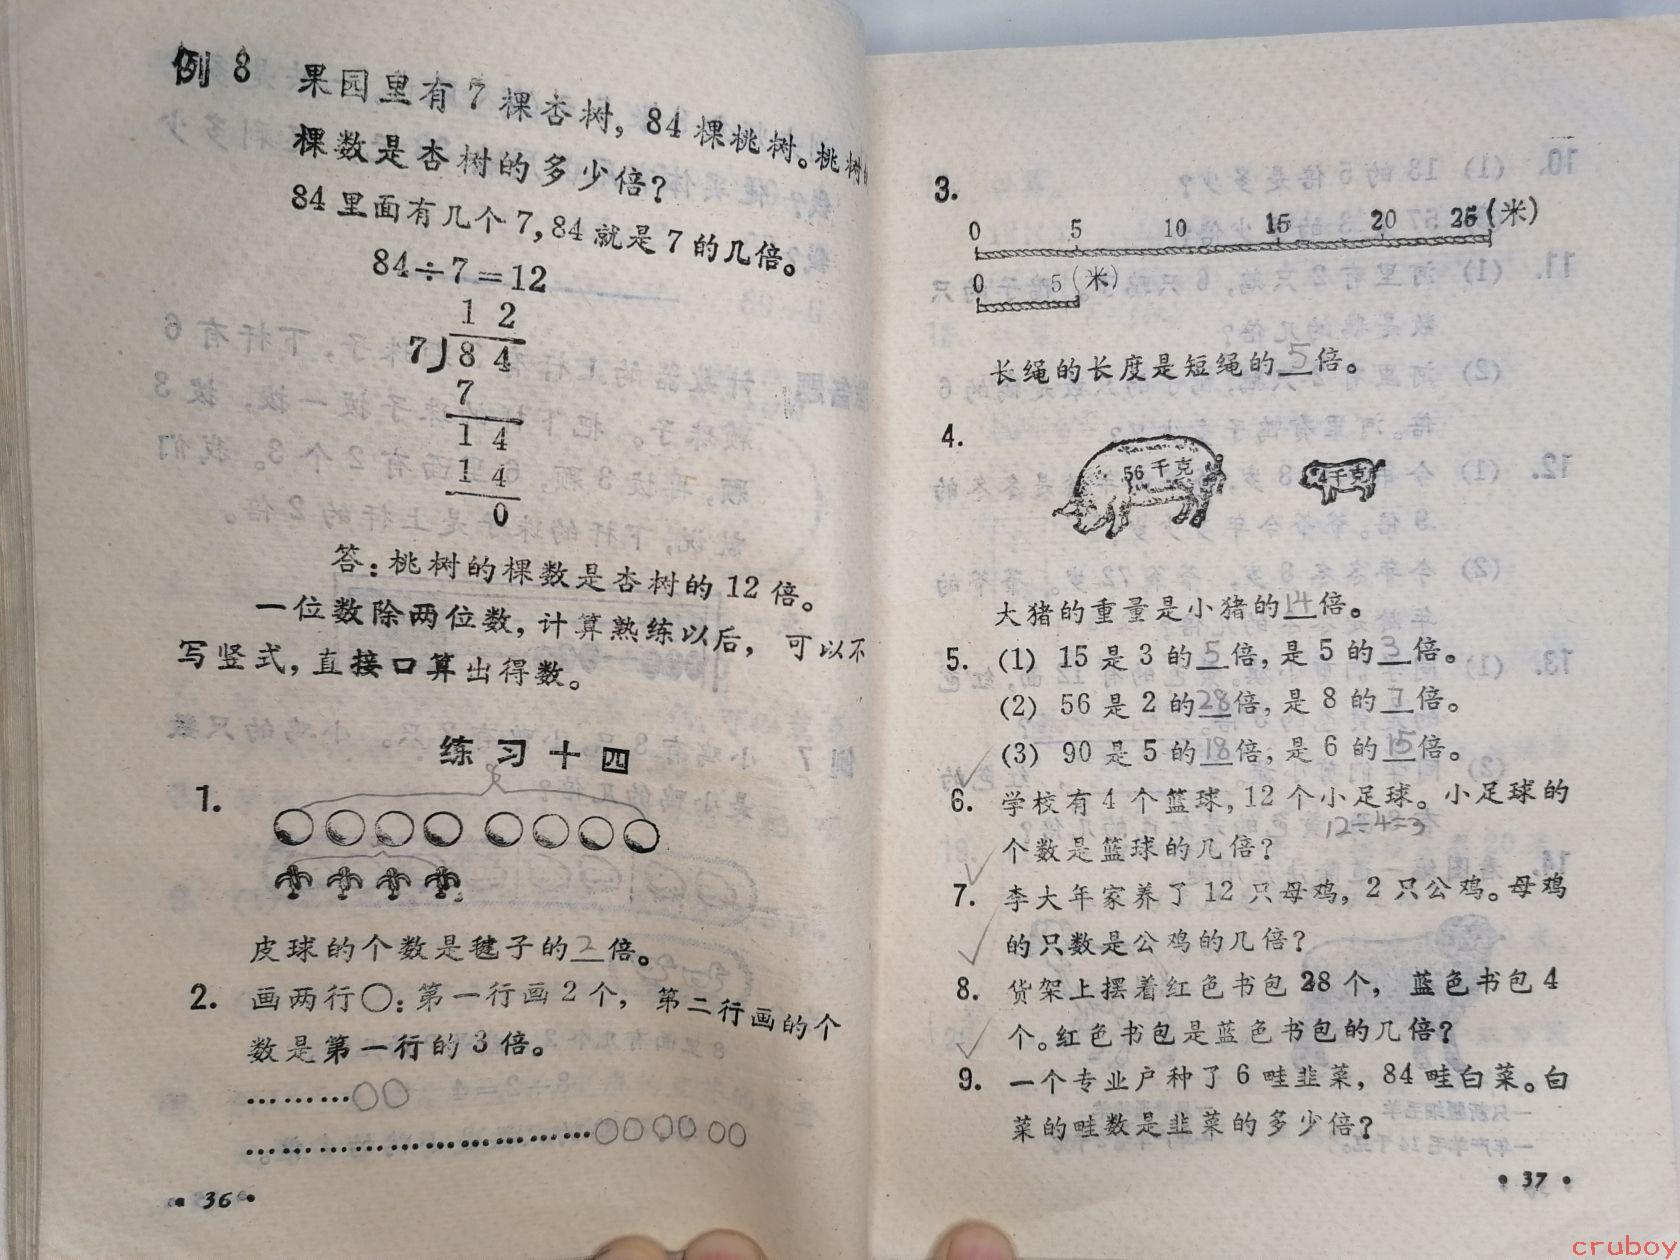 例 8 果园里有 7 棵杏树，84 棵桃树。桃树的
棵数是杏树的多少倍？
84 里面有几个 7，84 就是 7 的几倍。
84÷7=12
1 2
7)8 4
7
1 4
1 4
0
答：桃树的棵数是杏树的 12 倍。
一位数除两位数，计算熟练以后，可以不
写竖式，直接口算出得数。
练习十四
1.
皮球的个数是毽子的2倍。
2. 画两行○：第一行画 2 个，第二行画的个
数是第一行的 3 倍。
………○○
…………………………○○○○○○
• 36 •
3.
0 5 10 15 20 25(米)
0 5(米)
长绳的长度是短绳的5倍。
4.
56 千克 4千克
大猪的重量是小猪的14倍。
5. (1) 15 是 3 的5倍，是 5 的3倍。
(2) 56 是 2 的28倍，是 8 的7倍。
(3) 90 是 5 的18倍，是 6 的15倍。
6. 学校有 4 个篮球，12 个小足球。小足球的
12÷4=3
个数是篮球的几倍？
7. 李大年家养了 12 只母鸡，2 只公鸡。母鸡
的只数是公鸡的几倍？
8. 货架上摆着红色书包 28 个，蓝色书包 4
个。红色书包是蓝色书包的几倍？
9. 一个专业户种了 6 畦韭菜，84 畦白菜。白
菜的畦数是韭菜的多少倍？
• 37 •
cruboy